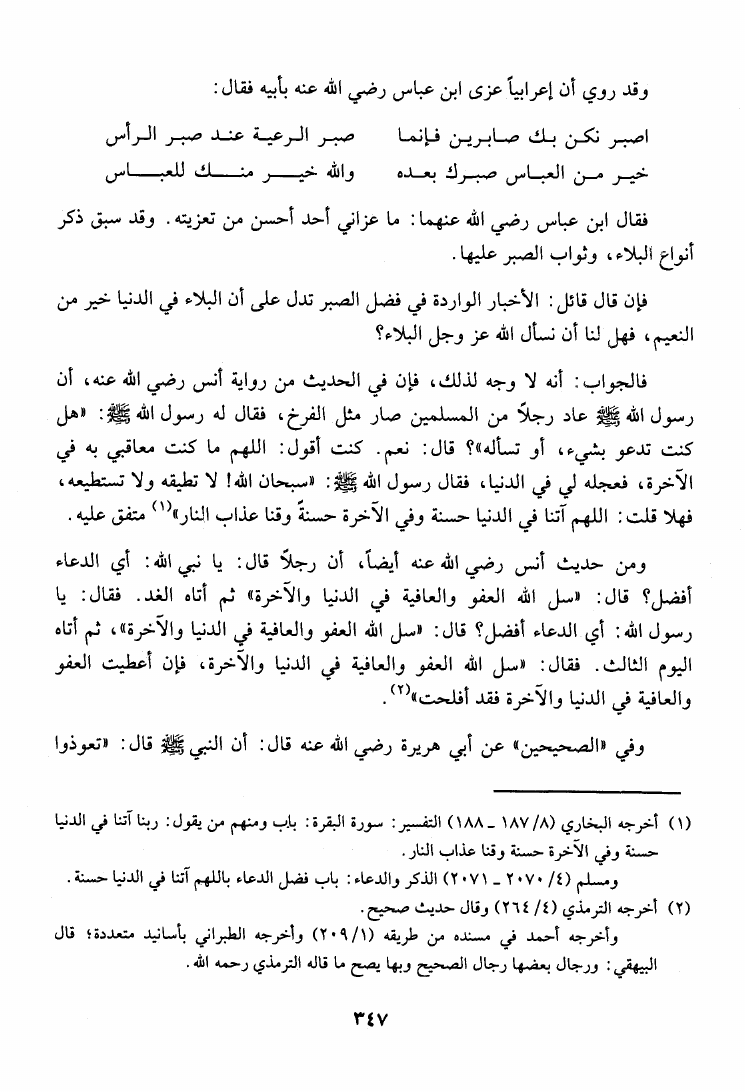 وقد روي أن إعرابياً عزى ابن عباس رضي الله عنه بأبيه فقال:
اصبر نكن بك صابرين فإنما صبر الرعية عند صبر الرأس
خير من العباس صبرك بعده والله خير منك للعباس
فقال ابن عباس رضي الله عنهما: ما عزاني أحد أحسن من تعزيته. وقد سبق ذكر
أنواع البلاء، وثواب الصبر عليها.
فإن قال قائل: الأخبار الواردة في فضل الصبر تدل على أن البلاء في الدنيا خير من
النعيم، فهل لنا أن نسأل الله عز وجل البلاء؟
فالجواب: أنه لا وجه لذلك، فإن في الحديث من رواية أنس رضي الله عنه، أن
رسول الله ﷺ عاد رجلاً من المسلمين صار مثل الفرخ، فقال له رسول الله ﷺ: «هل
كنت تدعو بشيء، أو تسأله»؟ قال: نعم. كنت أقول: اللهم ما كنت معاقبي به في
الآخرة، فعجله لي في الدنيا، فقال رسول الله ﷺ: «سبحان الله! لا تطيقه ولا تستطيعه،
فهلا قلت: اللهم آتنا في الدنيا حسنة وفي الآخرة حسنةً وقنا عذاب النار»(١) متفق عليه.
ومن حديث أنس رضي الله عنه أيضاً، أن رجلاً قال: يا نبي الله: أي الدعاء
أفضل؟ قال: «سل الله العفو والعافية في الدنيا والآخرة» ثم أتاه الغد. فقال: يا
رسول الله: أي الدعاء أفضل؟ قال: «سل الله العفو والعافية في الدنيا والآخرة»، ثم أتاه
اليوم الثالث. فقال: «سل الله العفو والعافية في الدنيا والآخرة، فإن أعطيت العفو
والعافية في الدنيا والآخرة فقد أفلحت»(٢).
وفي «الصحيحين» عن أبي هريرة رضي الله عنه قال: أن النبي ﷺ قال: «تعوذوا
(١) أخرجه البخاري (٨/ ١٨٧ ـ ١٨٨) التفسير: سورة البقرة: باب ومنهم من يقول: ربنا آتنا في الدنيا
حسنة وفي الآخرة حسنة وقنا عذاب النار.
ومسلم (٤/ ٢٠٧٠ ـ ٢٠٧١) الذكر والدعاء: باب فضل الدعاء باللهم آتنا في الدنيا حسنة.
(٢) أخرجه الترمذي (٤/ ٢٦٤) وقال حديث صحيح.
وأخرجه أحمد في مسنده من طريقه (١/ ٢٠٩) وأخرجه الطبراني بأسانيد متعددة؛ قال
البيهقي: ورجال بعضها رجال الصحيح وبها يصح ما قاله الترمذي رحمه الله.
٣٤٧